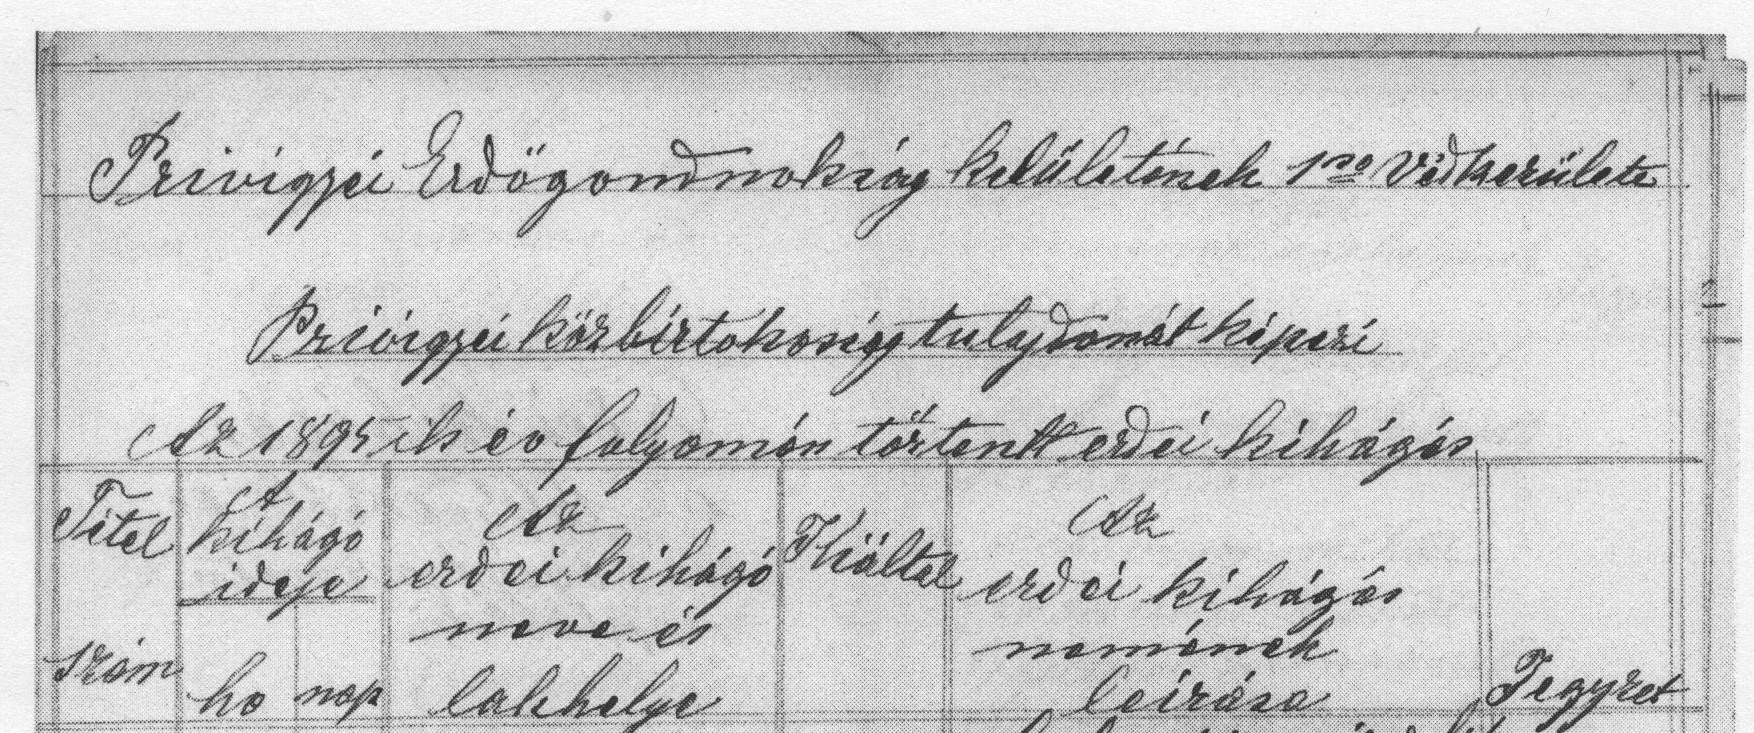 Privigyei Erdőgondnokság kelületének 1ső Védkerülete
Privigyei közbirtokosság tulajdonát képezi
Az 1895 ik év folyamán történtt erdei kihágás
Tétel
szám
A
kihágó
ideje
ho
nap
Az
erdei kihágó
neve és
lakhelye
Kiáltal
Az
erdei kihágás
nemének
leírása
Jegyzet